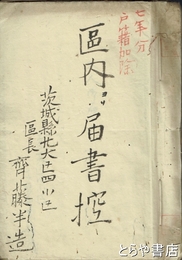 七年分
戸籍加除
區内諸届書控
茨城縣北大区四小区
區長 齊藤半造
とらや書店